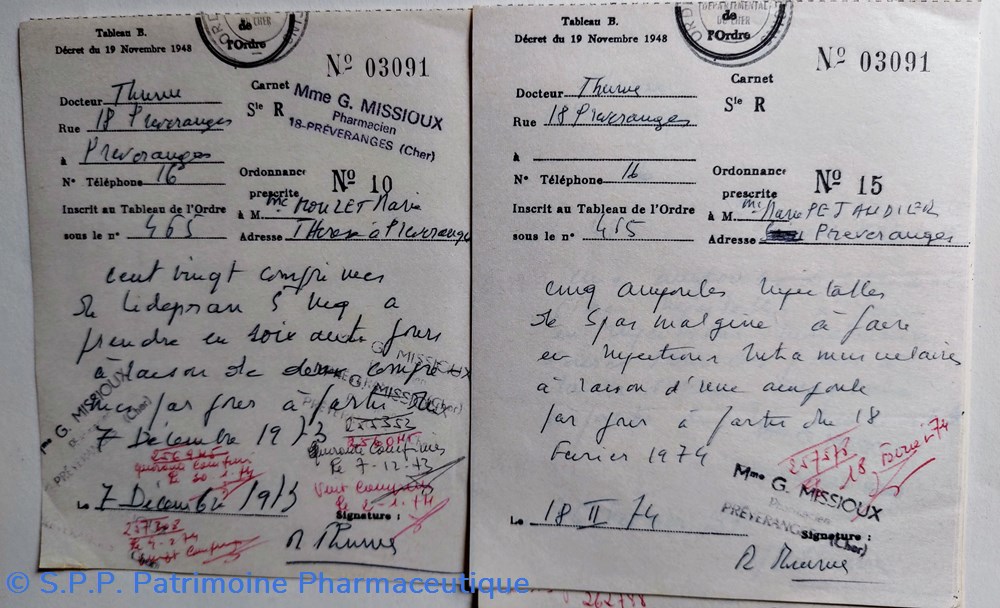 Tableau B.
Décret du 19 Novembre 1948
de
l'Ordre
Nº 03091
Carnet
Sie R
Docteur Thurve
Rue 18 Préveranges
à Préveranges
Nº Téléphone 16
Mme G. MISSIOUX
Pharmacien
18-PRÉVERANGES (Cher)
Ordonnance
prescrite Nº 10
Inscrit au Tableau de l'Ordre
à M. ROUZET Marie
sous le nº 465
Adresse Thérèse à Préveranges
cent vingt comprimés
de Lidepran 5 mg à
prendre en soixante jours
à raison de deux compri
més par jour à partir du
7 Décembre 1973
Mme G. MISSIOUX
PRÉVERANGES (Cher)
G. MISSIOUX
255352
quarante comprimés
le 7-12-73
vingt comprimés
le 2-1-74
Le 7 Décembre 1973
Signature :
R Thurve
Tableau B.
Décret du 19 Novembre 1948
DÉPARTEMENTAL
DU CHER
de
l'Ordre
Nº 03091
Carnet
Sie R
Docteur Thurve
Rue 18 Préveranges
à
Nº Téléphone 16
Ordonnance
prescrite Nº 15
Inscrit au Tableau de l'Ordre
à M. Marie PETAUDIER
sous le nº 465
Adresse Préveranges
cinq ampoules injectables
de Spasmalgine à faire
en injections intramusculaires
à raison d'une ampoule
par jour à partir du 18
Février 1974
257573
Mme G. MISSIOUX
PRÉVERANGES (Cher)
Le 18 II 74
Signature :
R Thurve
262798
© S.P.P. Patrimoine Pharmaceutique